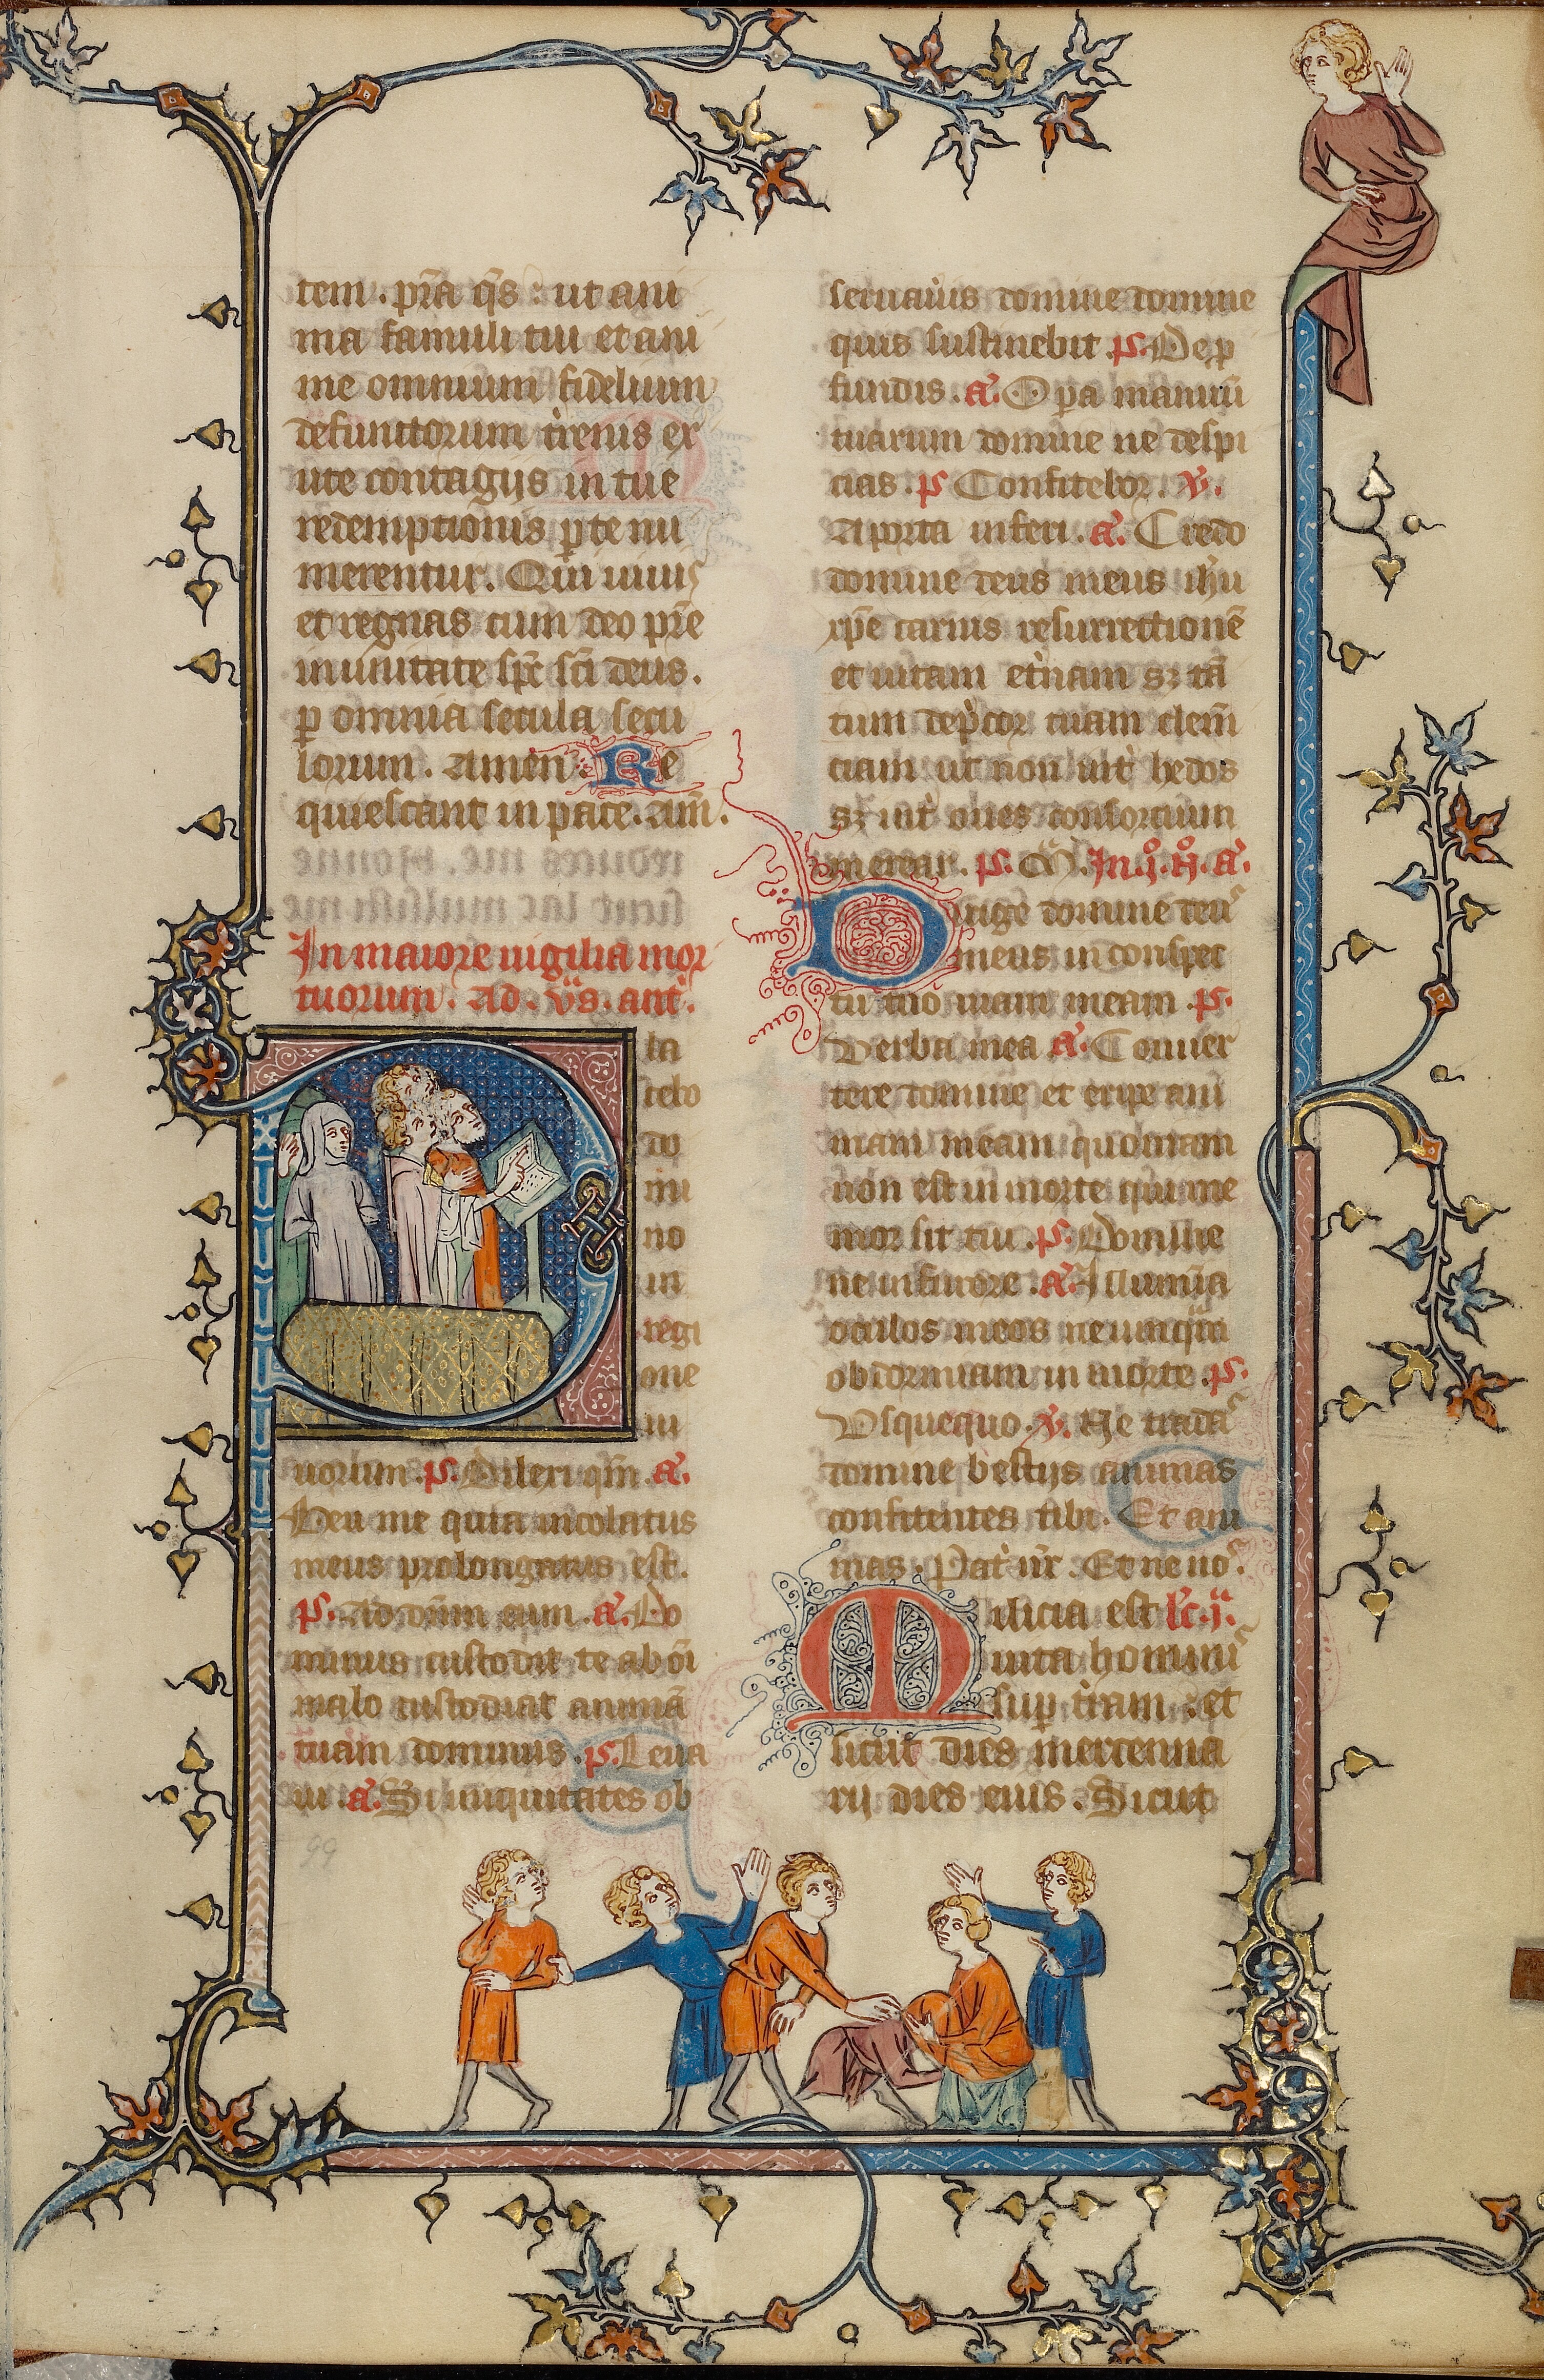 tem. p̄ra q̄s : ut ani
ma famuli tui et ani
me omnium fidelium
defunctorum t̓renis ex
ute contagijs in tue
redemptionis ꝑte nu
merentur. Qui uiuis
et regnas cum deo pr̄e
in unitate sp̄c sc̄i deus.
ꝑ omnia secula secu
lorum. Amen. Re
quiescant in pace. am̄.
In maiore uigilia mor
tuorum. Ad. v̄s. ant̓.
Pla
cebo
do
mi
no
in
regi
one
ui
uorum. p̄s. Dilexi qm̄. a.
Heu me quia incolatus
meus prolongatus est.
p̄s. Ad dn̄m cum. a. Do
minus custodit te ab oī
malo custodiat animā
tuam dominus. p̄s. Leua
ui. a. Si iniquitates ob
seruau̓is domine domine
quis sustinebit. p̄s. De ꝓ
fundis. a. Opa manuū
tuarum domine ne despi
cias. p̄s Confitebor. v̓.
A porta inferi. a. Credo
domine deus meus ih̄u
xp̄e carnis resurrectionē
et uitam et̓nam sꝫ tā
tum dep̓cor tuam clem̄
ciam ut non int̓ hedos
sꝫ int̓ oues consorcium
merear. p̄s. M. In. j. N. a.
Dirige domine deus
meus in conspec
tu tuo uiam meam. p̄s.
Verba mea a. Conuer
tere domine et eripe ani
mam meam quoniam
non est in morte qui me
mor sit tui. p̄s. Domine
ne in furore. a. Illumīa
oculos meos ne umq̄m
obdormiam in morte. p̄s.
Usquequo. v̓. Ne tradas
domine bestijs animas
confitentes tibi. Et ani
mas. Pat̓ nr̄. Et ne nos.
Milicia est lc̄. j.a
uita hominis
suꝑ t̓ram : et
sicut dies mercenna
rij dies eius. Sicut
99